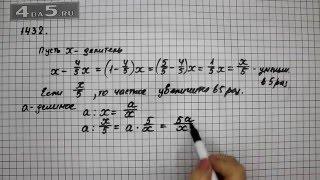 4ВА5.RU
1432.
Пусть x - делитель
x - 4/5 x = (1 - 4/5) x = (5/5 - 4/5) x = 1/5 x = x/5 - уменьш. в 5 раз
Если x/5, то частное увеличится в 5 раз.
a - делимое
a : x = a/x
a : x/5 = a · 5/x = 5a/x